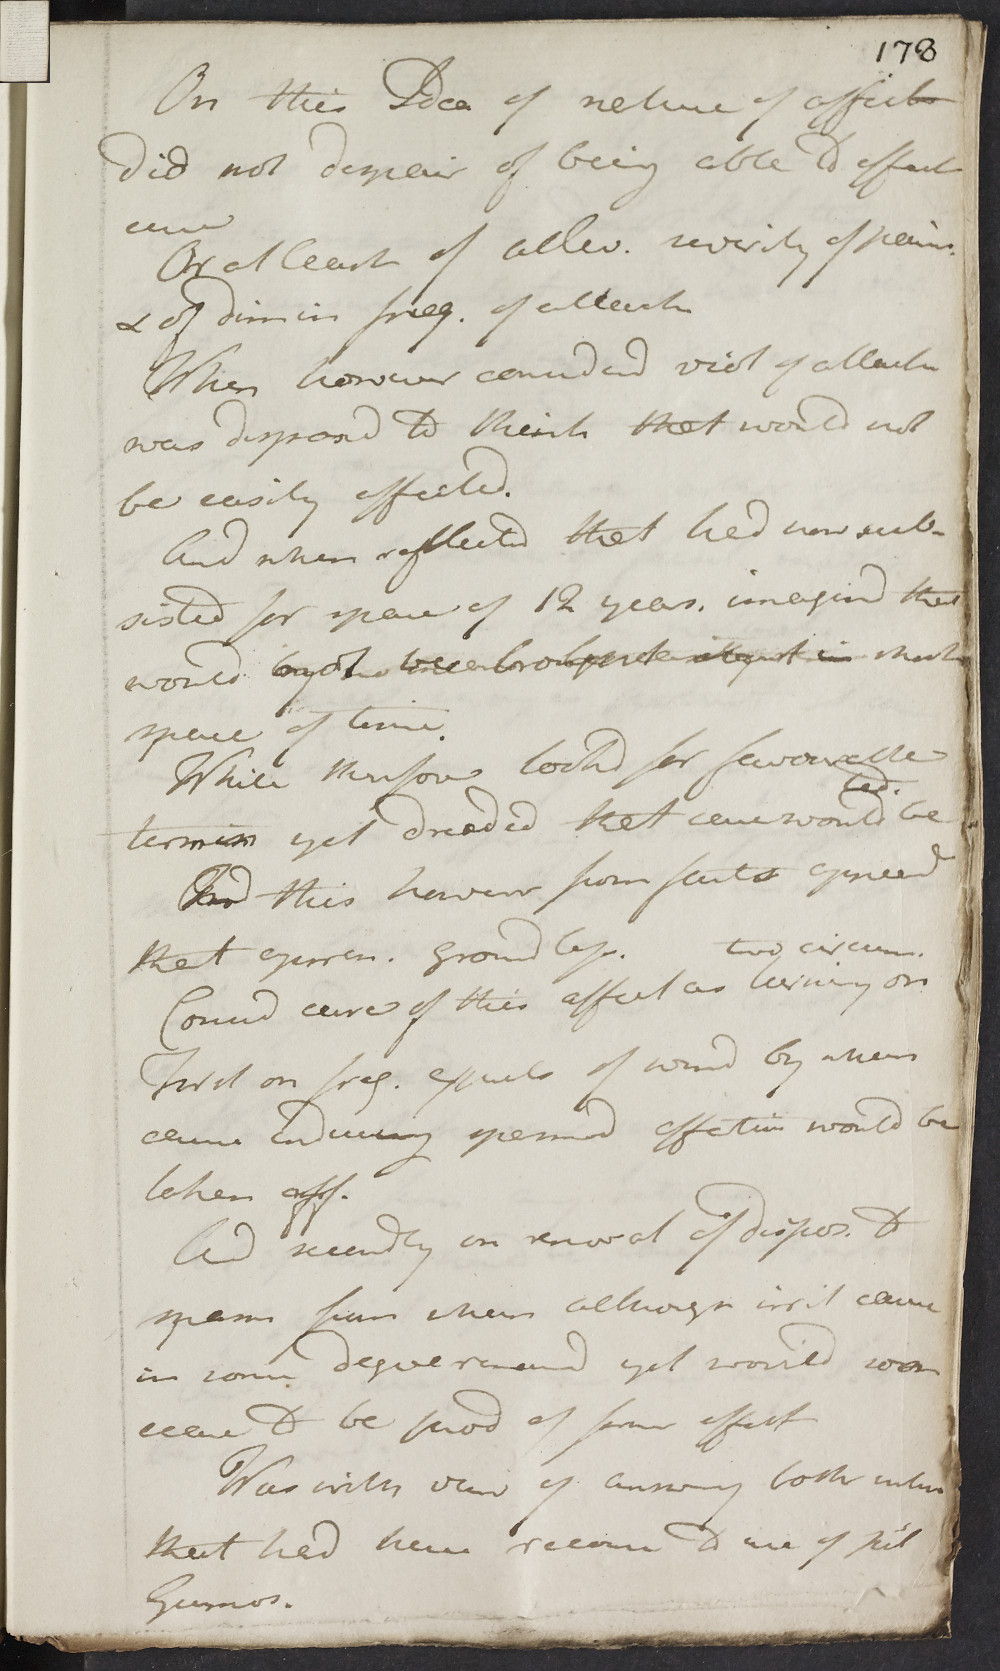 178
On this Idea of nature of affect
did not despair of being able to effect
cure
Or at least of allev. severity of pains.
& of dimin freq. of attacks
When however considered viol of attacks
was disposed to think that would not
be easily effected.
And when reflected that had now sub-
sisted for space of 12 years. imagind that
would not be in short
space of time.
While therfore lookd for favourable
termin yet dreaded that cure would be
ted.
And this however from facts appeard
that appren. groundless.
two circum.
Consid cure of this affect as turning on
First on freq. expuls of wind by when
cause inducing spasmod affection would be
taken off.
And secondly on removal of dispos. to
spasm from when although irrit cause
in some degree remaind yet would soon
cease to be prod of same effect
Was with view of answering both
that had here recourse to use of pil
Gumos.